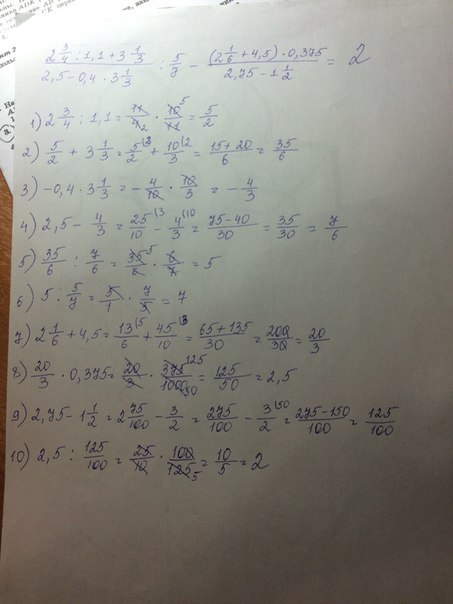 (2 3/4 : 1,1 + 3 1/3)/(2,5 - 0,4 · 3 1/3) : 5/7 - ((2 1/6 + 4,5) · 0,375)/(2,75 - 1 1/2) = 2
1) 2 3/4 : 1,1 = 11/4 2 · 10 5/11 = 5/2
2) 5/2 + 3 1/3 = 5 (3/2 + 10 (2/3 = (15 + 20)/6 = 35/6
3) -0,4 · 3 1/3 = - 4/10 · 10/3 = - 4/3
4) 2,5 - 4/3 = 25 (3/10 - 4 (10/3 = (75 - 40)/30 = 35/30 = 7/6
5) 35/6 : 7/6 = 35 5/6 · 6/7 = 5
6) 5 : 5/7 = 5/1 · 7/5 = 7
7) 2 1/6 + 4,5 = 13 (5/6 + 45 (3/10 = (65 + 135)/30 = 200/30 = 20/3
8) 20/3 · 0,375 = 20/3 · 375 125/1000 50 = 125/50 = 2,5
9) 2,75 - 1 1/2 = 2 75/100 - 3/2 = 275/100 - 3 (50/2 = (275 - 150)/100 = 125/100
10) 2,5 : 125/100 = 25/10 · 100/125 5 = 10/5 = 2